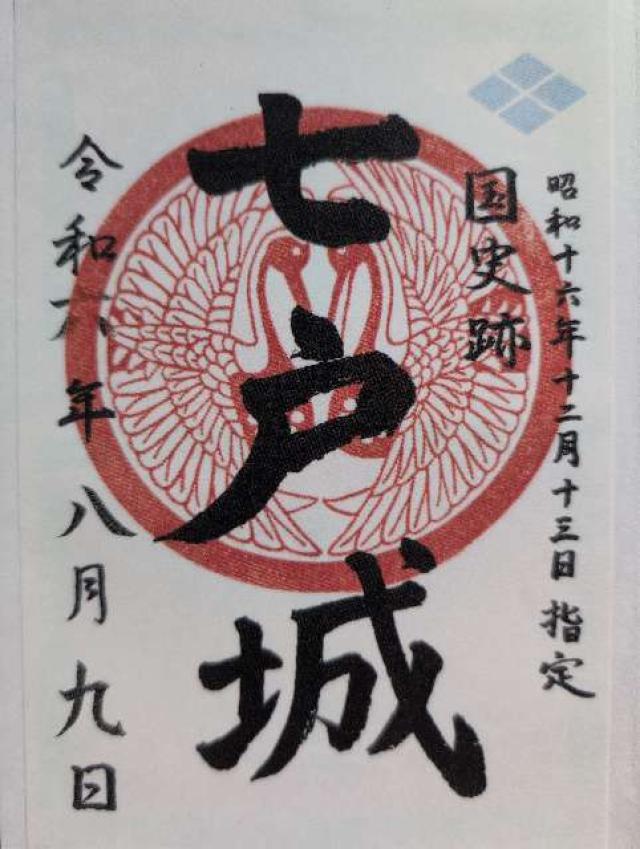 昭和十六年十二月十三日 指定
国史跡
七戸城
令和六年 八月九日